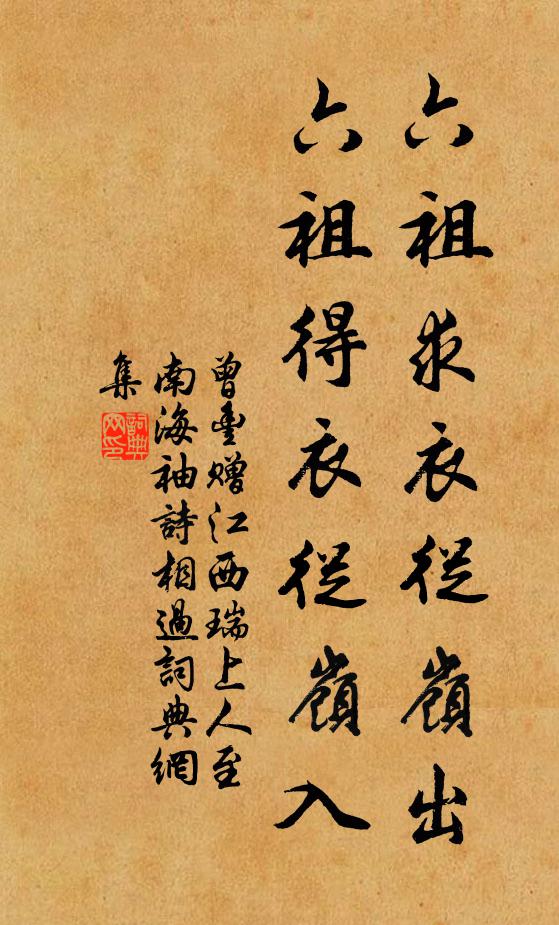 六祖求衣從嶺出
六祖得衣從嶺入
曾豐贈江西瑞上人至
南海袖詩相過詞典網
集
詞典网印